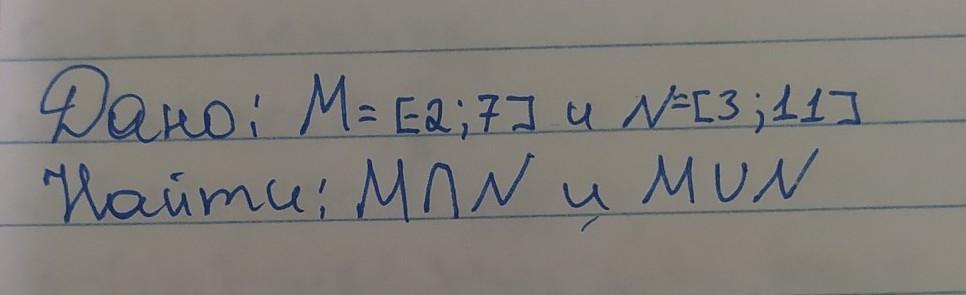 Дано: M = [2;7] и N=[3;11]
Найти: M∩N и M∪N